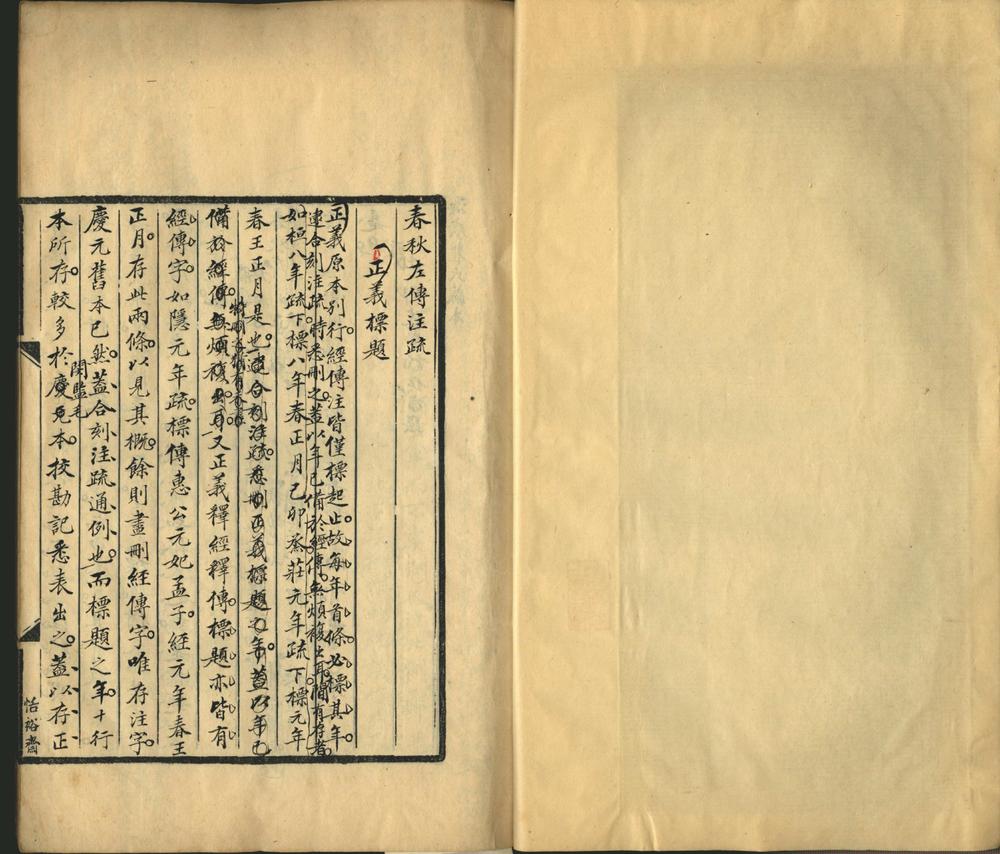 春秋左傳注疏
正義標題
正義原本別行經傳注皆僅標起止故每年首條必標其年
逮合刻注疏時悉刪之蓋以年已備於經傳無煩複出耳間有存者
如桓八年疏下標八年春正月己卯烝莊元年疏下標元年
春王正月是也逮合刻注疏悉刪正義標題之年蓋以年已
備於經傳無煩複出耳又正義釋經釋傳標題亦皆有
經傳字如隱元年疏標傳惠公元妃孟子經元年春王
正月存此兩條以見其概餘則盡刪經傳字唯存注字
慶元舊本已然蓋合刻注疏通例也而標題之年十行
閩監毛
本所存較多於慶元本校勘記悉表出之蓋以存正
恬裕齋